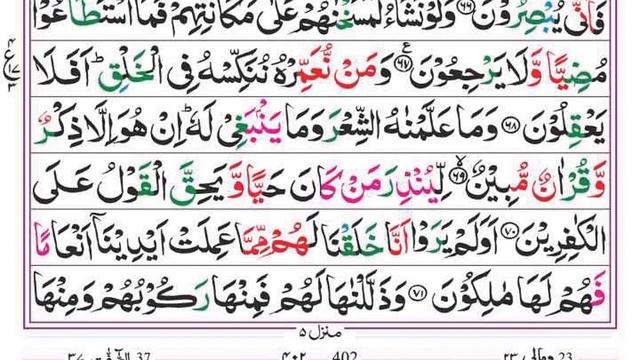 فَاَنّٰى يُبْصِرُوْنَ ﴿۶۶﴾ وَلَوْ نَشَآءُ لَمَسَخْنٰهُمْ عَلٰى مَكَانَتِهِمْ فَمَا اسْتَطَاعُوْا
مُضِيًّا وَّلَا يَرْجِعُوْنَ ﴿۶۷﴾ وَمَنْ نُّعَمِّرْهُ نُنَكِّسْهُ فِى الْخَلْقِ ؕ اَفَلَا
يَعْقِلُوْنَ ﴿۶۸﴾ وَمَا عَلَّمْنٰهُ الشِّعْرَ وَمَا يَنْۢبَغِىْ لَهٗ ؕ اِنْ هُوَ اِلَّا ذِكْرٌ
وَّقُرْاٰنٌ مُّبِيْنٌ ﴿۶۹﴾ لِّيُنْذِرَ مَنْ كَانَ حَيًّا وَّيَحِقَّ الْقَوْلُ عَلَى
الْكٰفِرِيْنَ ﴿۷۰﴾ اَوَلَمْ يَرَوْا اَنَّا خَلَقْنَا لَهُمْ مِّمَّا عَمِلَتْ اَيْدِيْنَاۤ اَنْعَامًا
فَهُمْ لَهَا مٰلِكُوْنَ ﴿۷۱﴾ وَذَلَّلْنٰهَا لَهُمْ فَمِنْهَا رَكُوْبُهُمْ وَمِنْهَا
منزل ۵
37 ۳۷ ۴۰۲ 402 ومالى ۲۳ 23